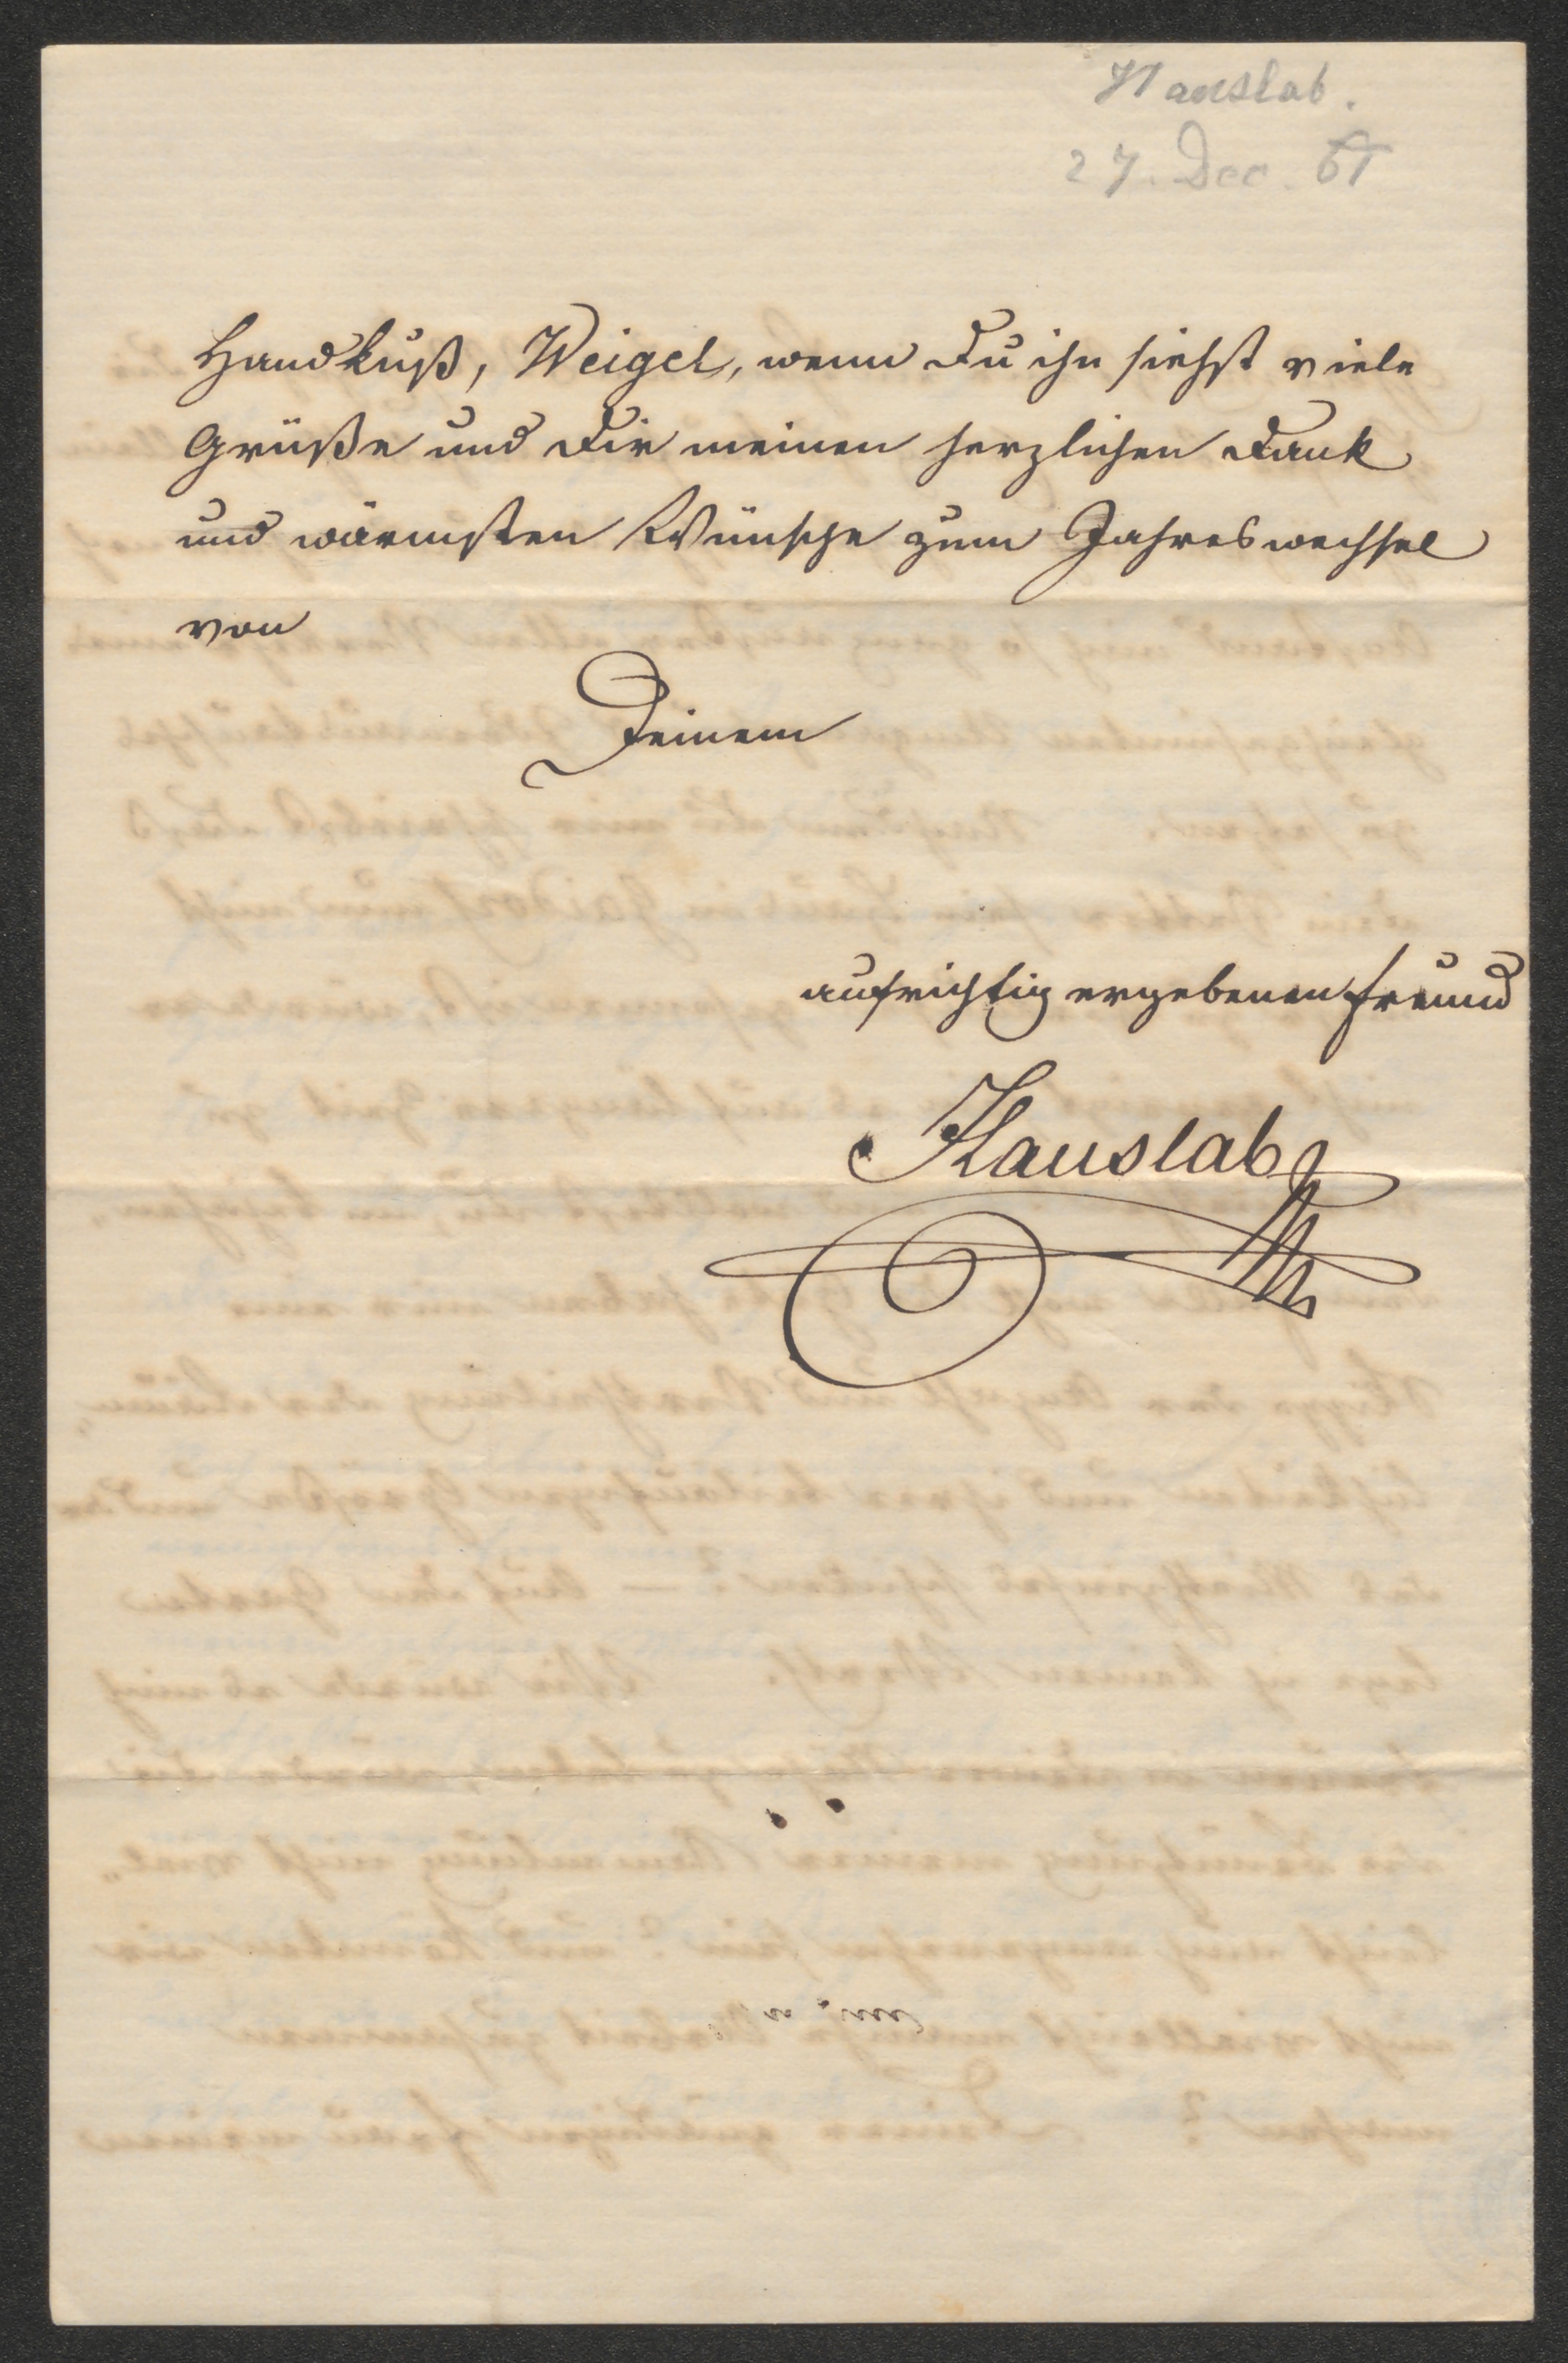 Hauslab.
27. Dec. 61
Handkuß, Weigel, wenn Du ihn siehst viele
Grüße und Dir meinen herzlichen Dank
und wärmsten Wünsche zum Jahreswechsel
von
Deinem
aufrichtig ergebenen Freund
Hauslab